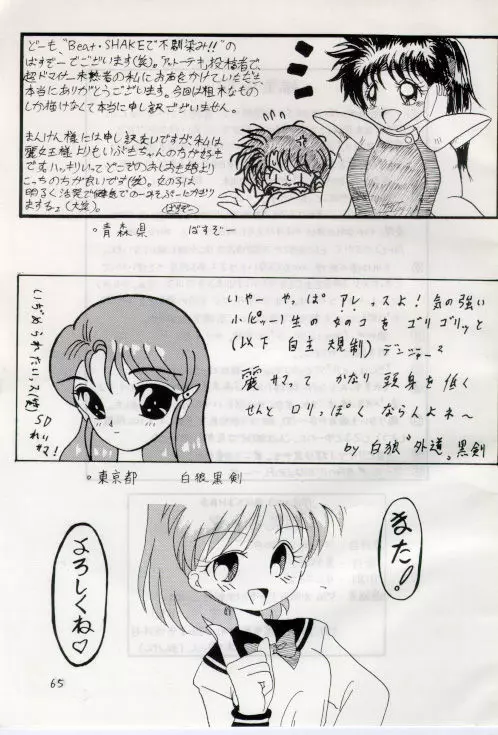 どーも、"Beat・SHAKEで不馴染み!!"の
ばすぞーでございます(笑)。アットーテキ投稿者で、
超ドマイナー未熟者の私にお声をかけていただき、
本当にありがとうございます。今回は粗末なもの
しか描けなくて本当に申し訳ございません。
まんけん様には申し訳ないですが、私は
麗女王様よりもいぶきちゃんの方が好き
です。ハッキリいってどこぞの
こっちの方が良いです(笑)。女の子は
明るく活発で健康で
ますな(大笑)。
ばすぞー
。青森県 ばすぞー
いぢめられたいっス(爆)
SD
れい
サマ!
いやー、やっぱ アレっスよ! 気の強い
小ピッー)生の女のコを ゴリゴリッと
(以下 自主規制) デンジャー2
麗サマって かなり 頭身を低く
せんと ロリっぽく ならんよネ〜
by 白狼"外道"黒剣
。東京都 白狼黒剣
また!
よろしくね♡
65